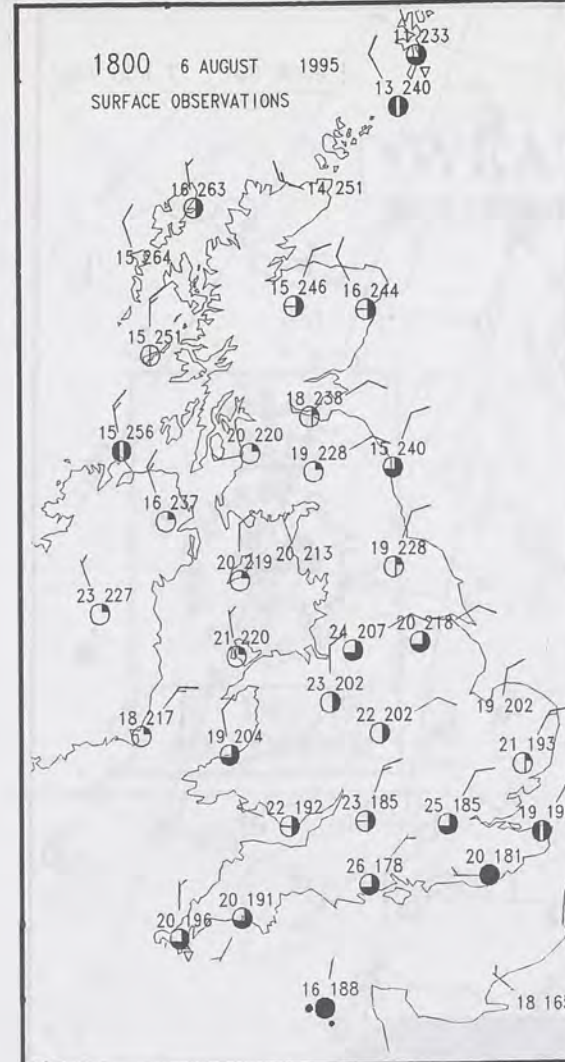 1800 6 AUGUST 1995
SURFACE OBSERVATIONS
233
13 240
16 263
14 251
15 264
15 246
16 244
15 251
18 238
15 256
20 220
19 228
15 240
16 237
20 219
20 213
19 228
23 227
21 220
24 207
20 218
23 202
19 202
22 202
18 217
19 204
21 193
22 192
23 185
25 185
19 19
20 181
26 178
20 191
20 196
16 188
18 165